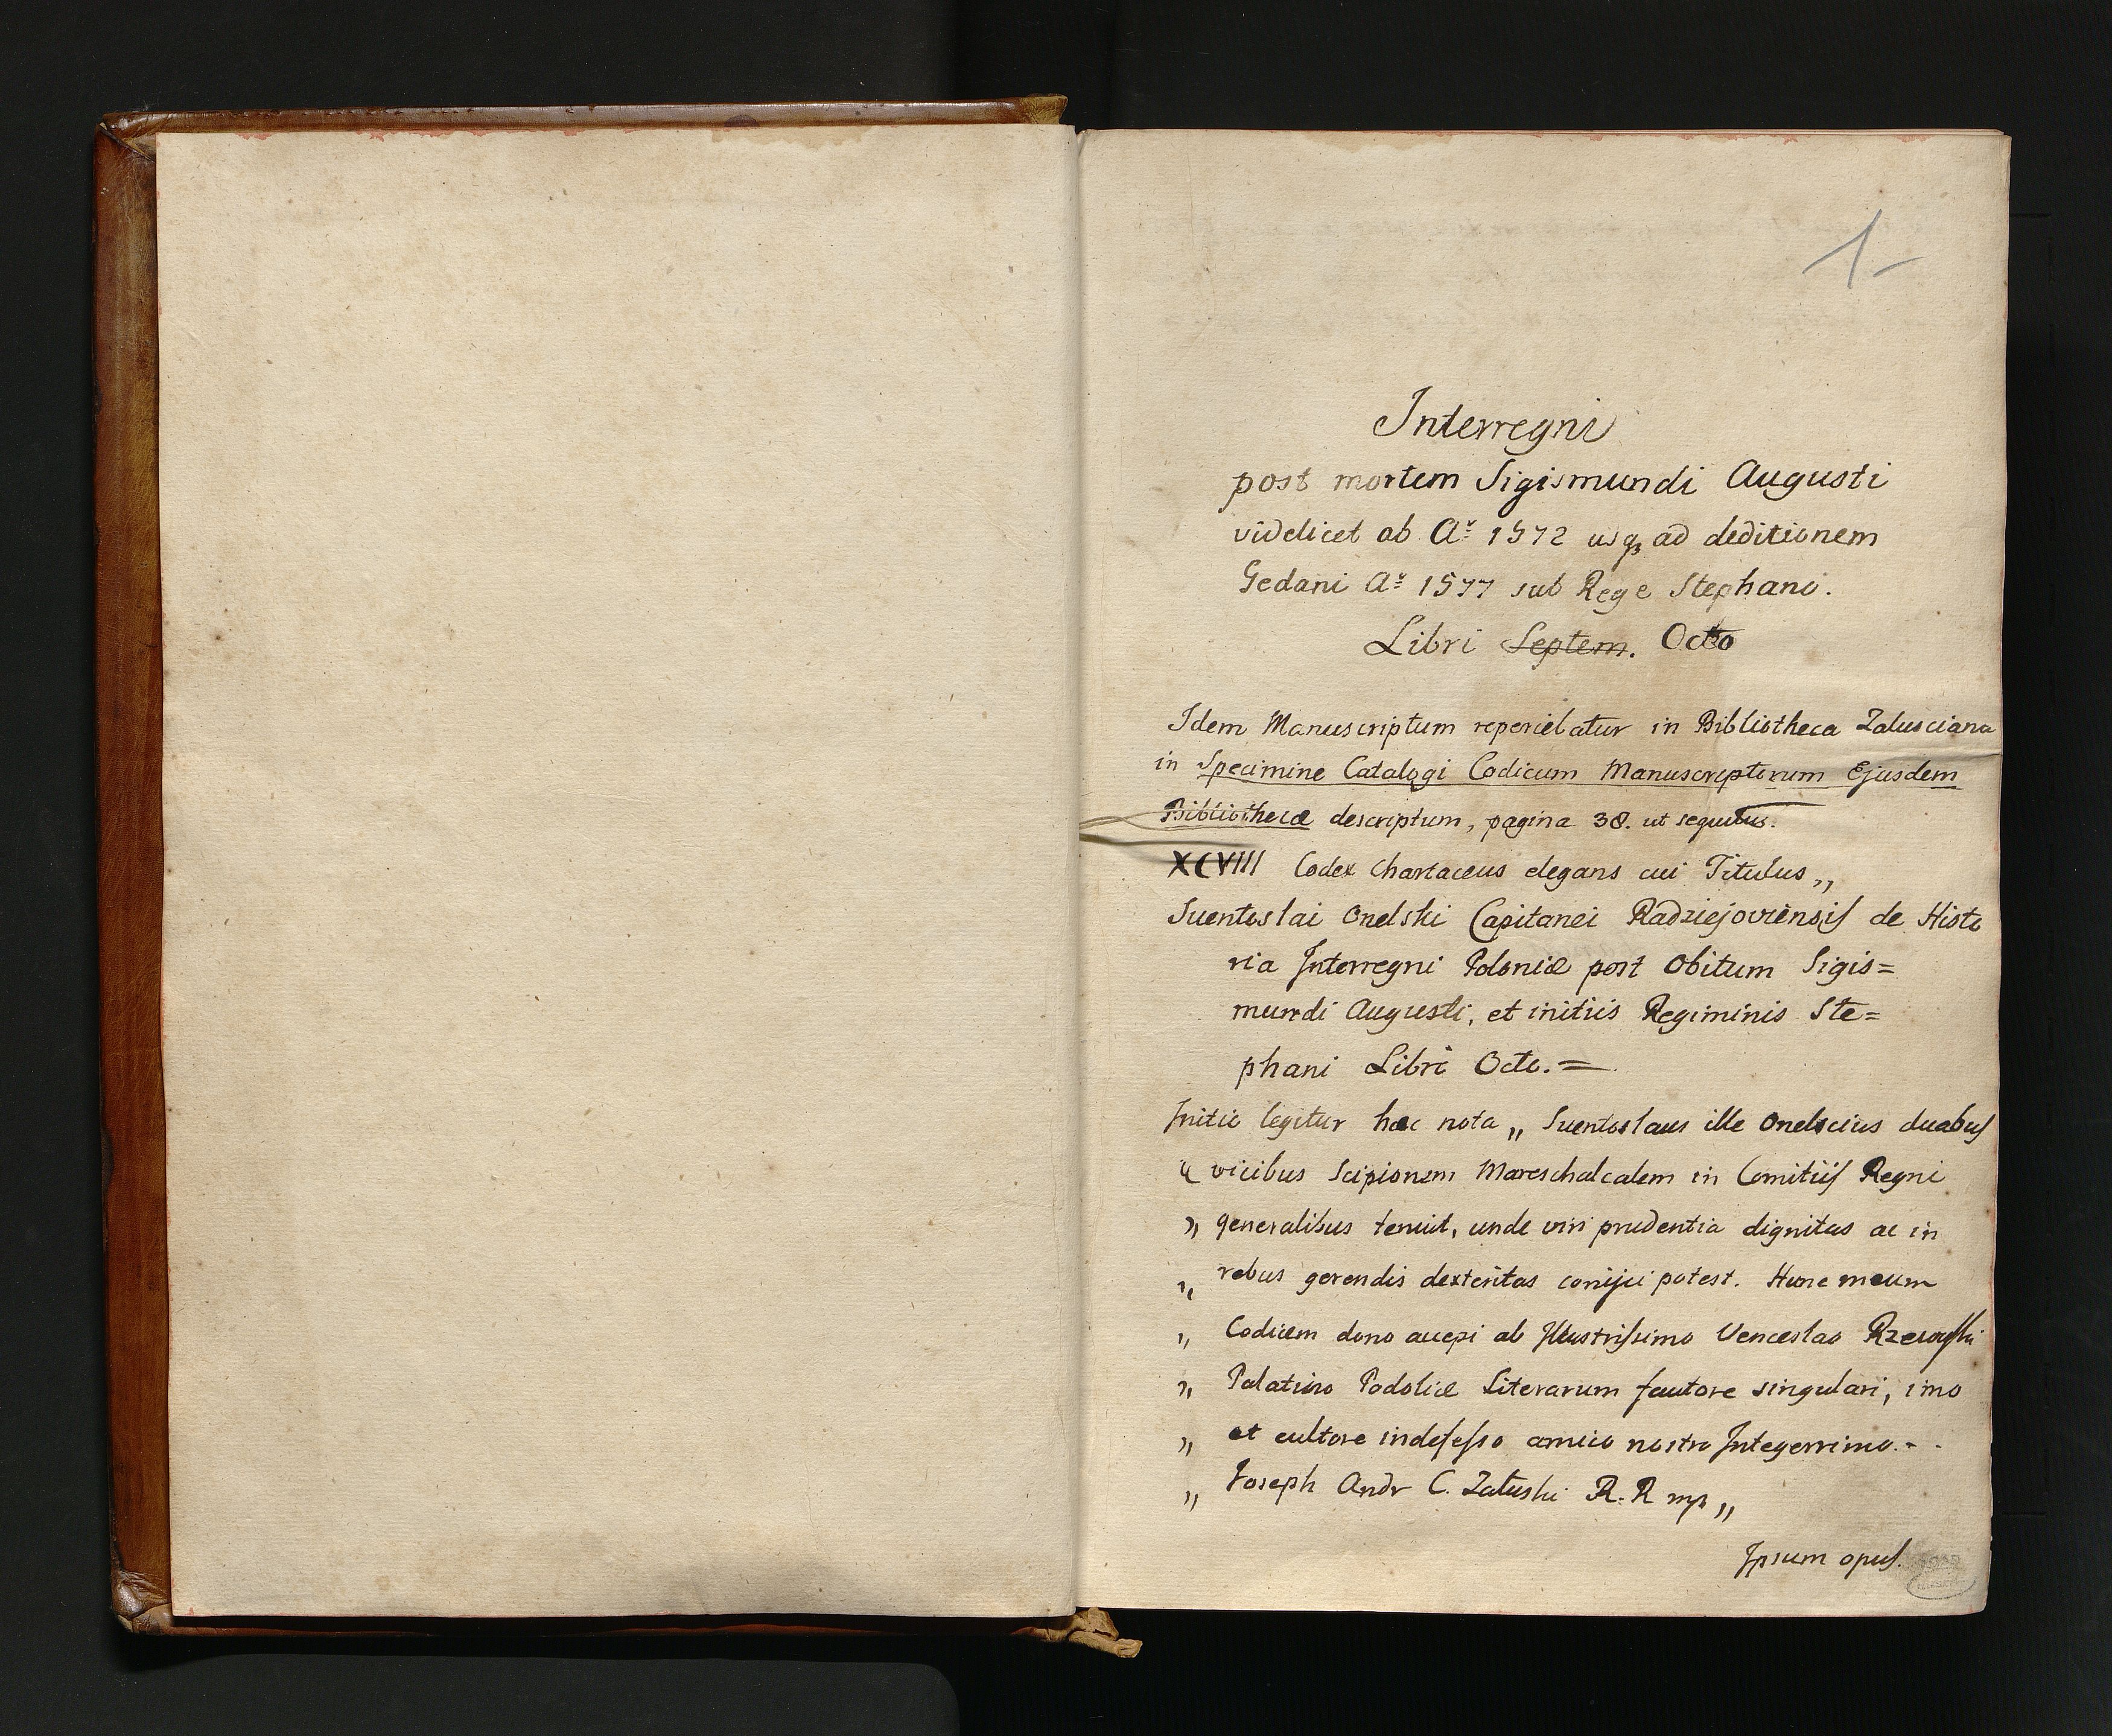 1
Interregni
post mortem Sigismundi Augusti
videlicet ab Aº 1572 usq₃ ad deditionem
Gedani Aº 1577 sub Rege Stephano.
Libri Septem. Octo
Idem Manuscriptum reperiebatur in Bibliotheca Zalusciana
in Specimine Catalogi Codicum Manuscriptorum Ejusdem
Bibliothecæ descriptum, pagina 38. ut sequitur.
XCVIII Codex Chartaceus elegans cui Titulus „
Suentoslai Orzelski Capitanei Radziejoviensis de Histo
ria Interregni Poloniæ post Obitum Sigis=
mundi Augusti, et initiis Regiminis Ste=
phani Libri Octo.=
Initio legitur hæc nota „ Suentoslaus ille Orzelscius duabus
„ vicibus Scipionem Mareschalcalem in Comitiis Regni
„ generalibus tenuit, unde viri prudentia dignitas ac in
„ rebus gerendis dexteritas conijci potest. Hunc meum
„ Codicem dono accepi ab Illustrissimo Venceslao Rzewuski
„ Palatino Podoliæ Literarum fautore singulari, imo
„ et cultore indefesso amico nostro Integerrimo.-.
„ Joseph Andr C. Zaluski R. R mp „
Ipsum opus.